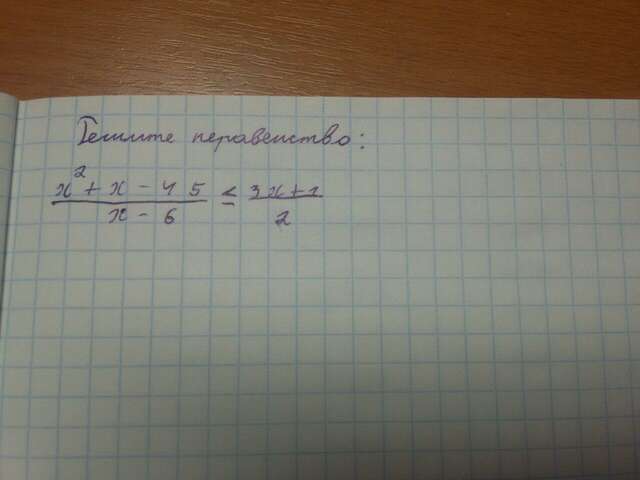 Решите неравенство:
x² + x - 45 / x - 6 ≤ 3x + 1 / 2